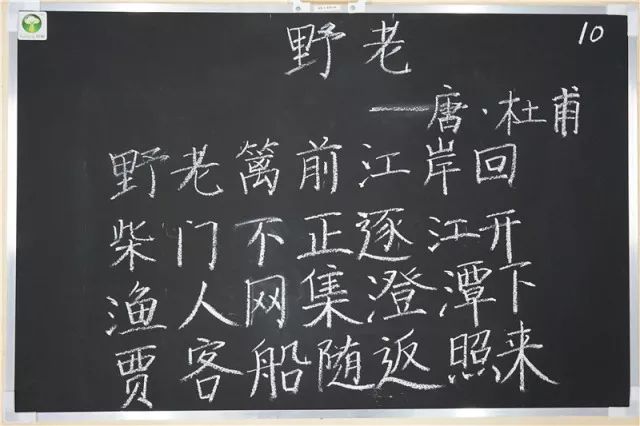 野老
10
——唐·杜甫
野老篱前江岸回
柴门不正逐江开
渔人网集澄潭下
贾客船随返照来